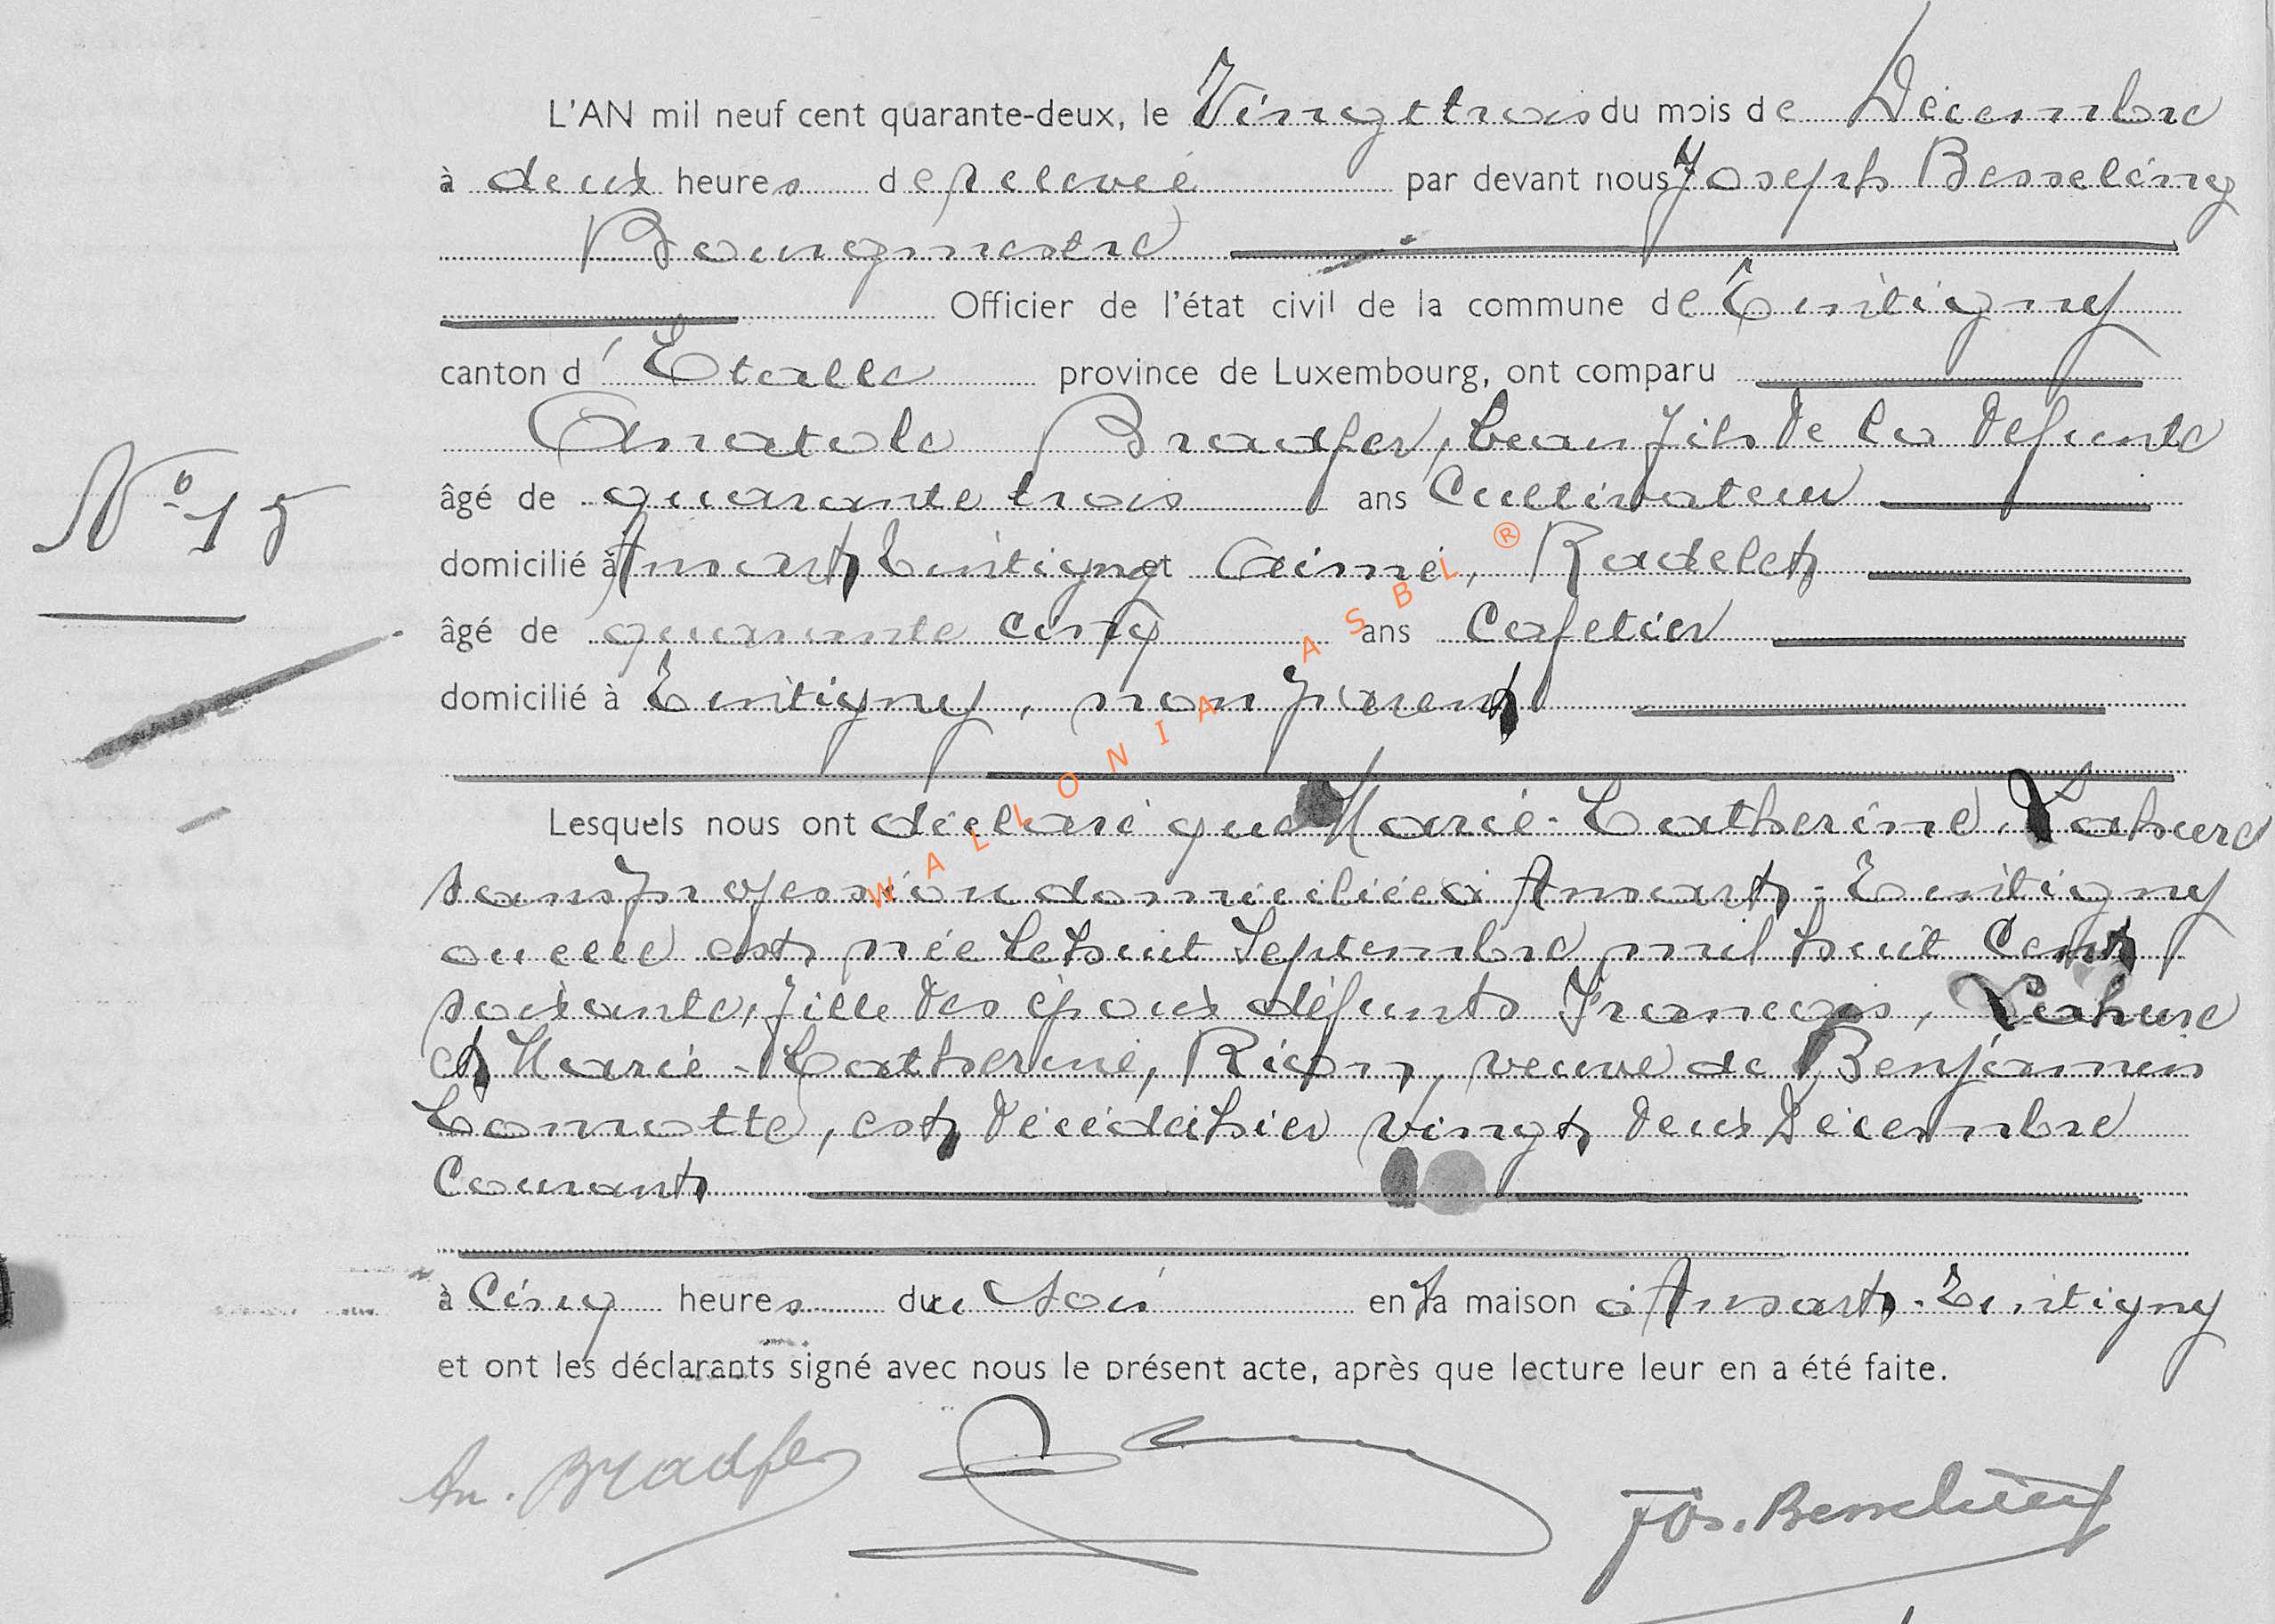 L'AN mil neuf cent quarante-deux, le Vingt trois du mois de Décembre
à deux heures de relevée par devant nous Joseph Besseling
Bourgmestre
Officier de l'état civil de la commune de Tintigny
canton d'Etalle province de Luxembourg, ont comparu
Anatole Bradfer, beau fils de la défunte
N° 15
âgé de quarante trois ans Cultivateur
domicilié à Ansart Tintigny et Aimé, Radelet
âgé de quarante cinq ans Cafetier
domicilié à Tintigny, non parent
Lesquels nous ont déclaré que Marie-Catherine Lahure
sans profession domiciliée à Ansart-Tintigny
ou elle est née le huit Septembre mil huit Cent
soixante, fille des époux défunts François, Lahure
et Marie-Catherine, Rion, veuve de Benjamin
Comotte, est décédée hier vingt deux Décembre
Courant
à Cinq heures du soir en sa maison à Ansart-Tintigny
et ont les déclarants signé avec nous le présent acte, après que lecture leur en a été faite.
An. Bradfer
Jos. Besseling
WALLONIA ASBL ®